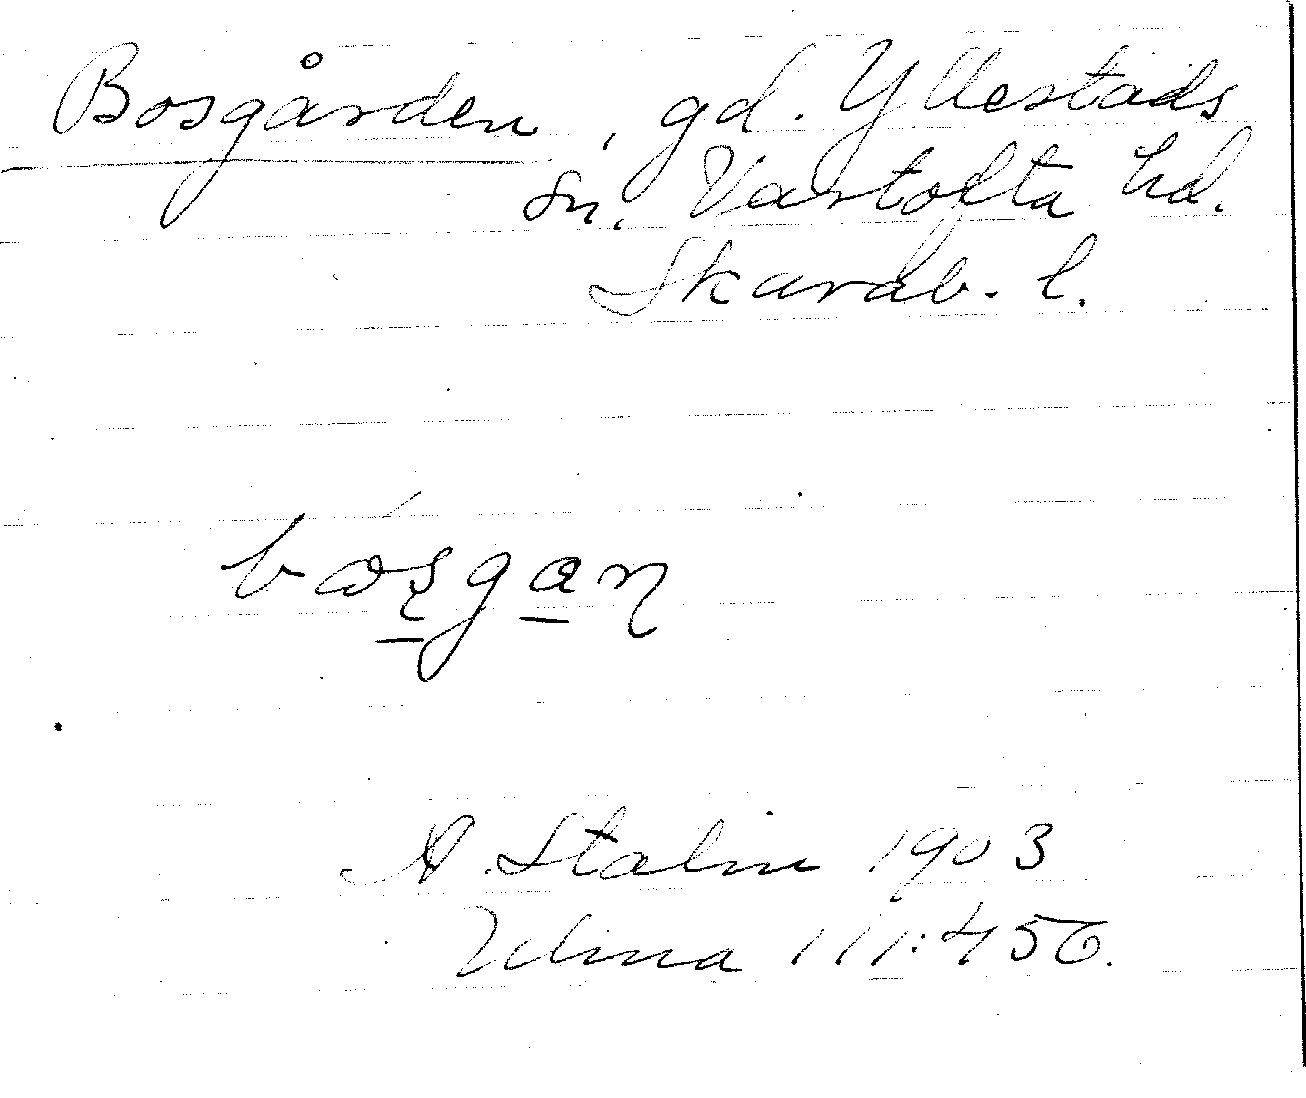 Bosgården, gd. Yllestads
sn. Vartofta hd.
Skarab. l.
A. Stalin 1903
Ulma 111:456.